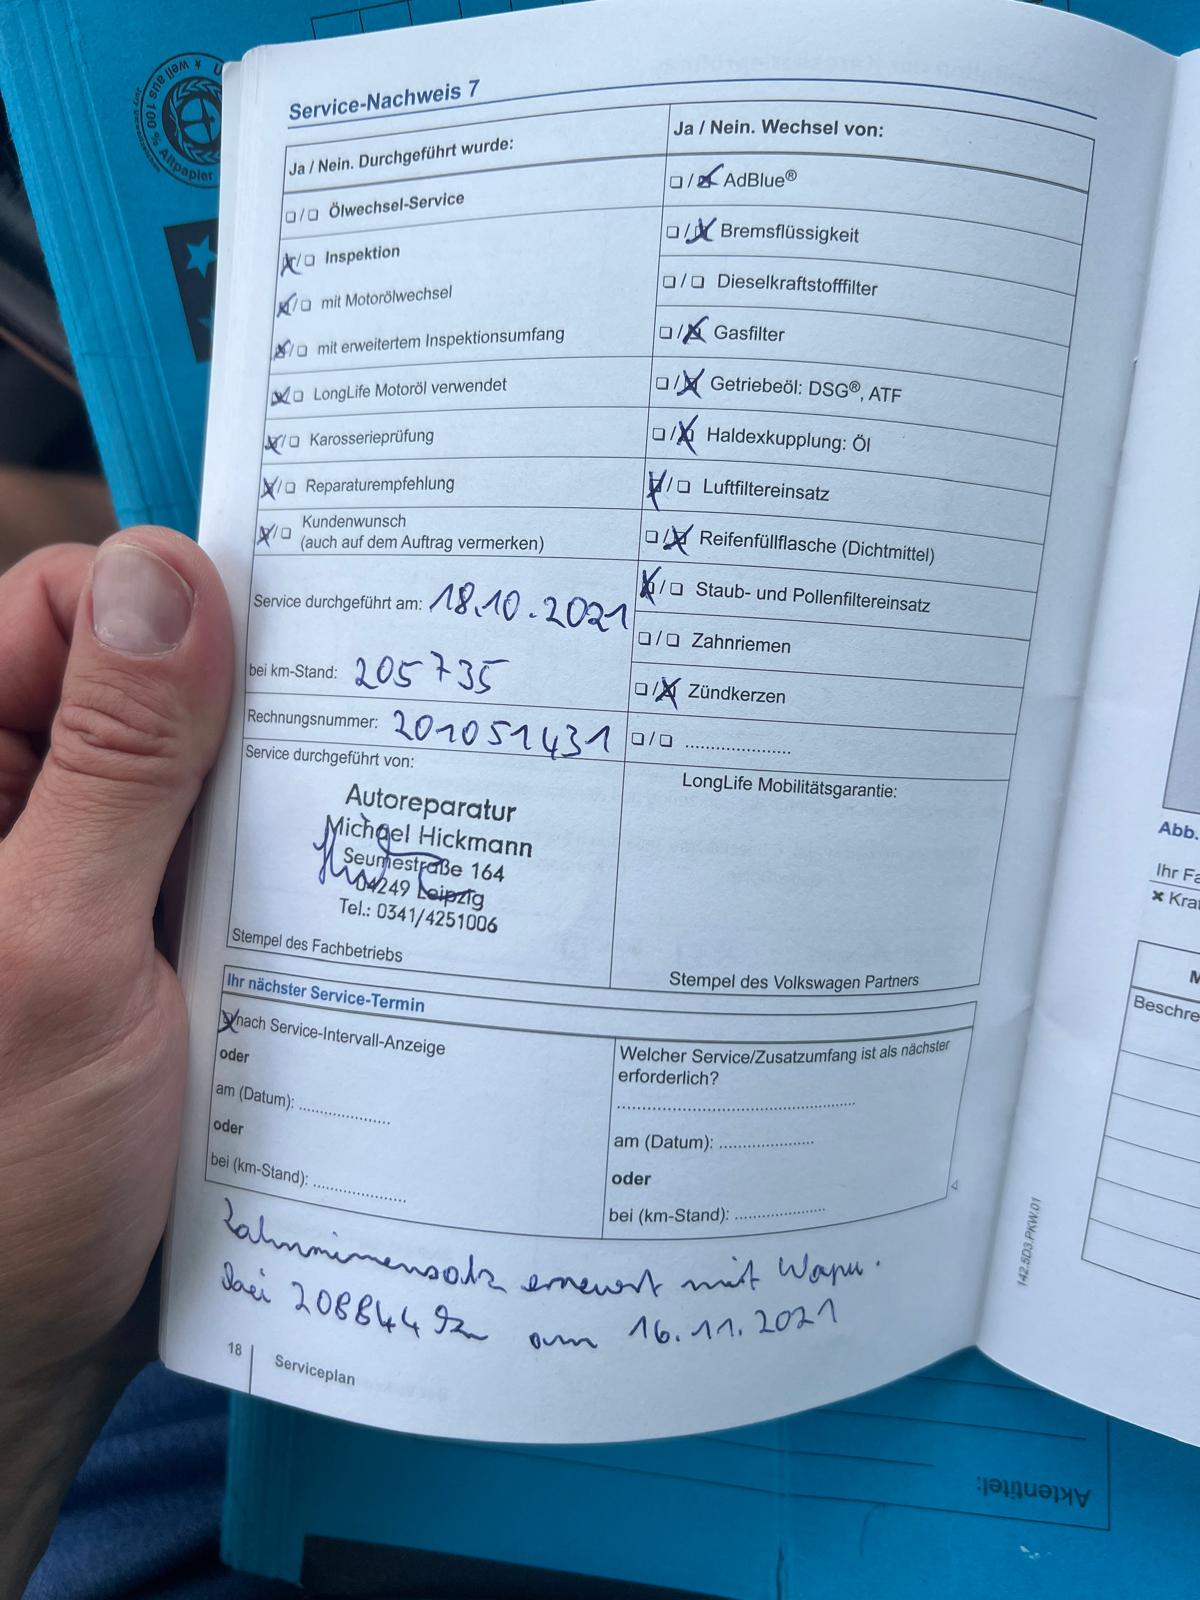 Service-Nachweis 7
Ja / Nein. Durchgeführt wurde:
☐ / ☐ Ölwechsel-Service
☒ / ☐ Inspektion
☒ / ☐ mit Motorölwechsel
☒ / ☐ mit erweitertem Inspektionsumfang
☒ / ☐ LongLife Motoröl verwendet
☒ / ☐ Karosserieprüfung
☒ / ☐ Reparaturempfehlung
☒ / ☐ Kundenwunsch
(auch auf dem Auftrag vermerken)
Service durchgeführt am: 18.10.2021
bei km-Stand: 205735
Rechnungsnummer: 201051431
Service durchgeführt von:
Autoreparatur
Michael Hickmann
Seumestraße 164
04249 Leipzig
Tel.: 0341/4251006
Stempel des Fachbetriebs
Ja / Nein. Wechsel von:
☐ / ☒ AdBlue®
☐ / ☒ Bremsflüssigkeit
☐ / ☐ Dieselkraftstofffilter
☐ / ☒ Gasfilter
☐ / ☒ Getriebeöl: DSG®, ATF
☐ / ☒ Haldexkupplung: Öl
☒ / ☐ Luftfiltereinsatz
☐ / ☒ Reifenfüllflasche (Dichtmittel)
☒ / ☐ Staub- und Pollenfiltereinsatz
☐ / ☐ Zahnriemen
☐ / ☒ Zündkerzen
☐ / ☐ .....................
LongLife Mobilitätsgarantie:
Stempel des Volkswagen Partners
Ihr nächster Service-Termin
☒ nach Service-Intervall-Anzeige
oder
am (Datum): ..................
oder
bei (km-Stand): ..................
Welcher Service/Zusatzumfang ist als nächster
erforderlich?
..............................................
am (Datum): ..................
oder
bei (km-Stand): ..................
Zahnriemensatz erneuert mit Wapu.
bei 208844 km am 16.11.2021
18
Serviceplan
142.5D3.PKW.01
Abb.
Ihr Fa
✖ Kra
M
Beschre
weil aus 100 % Altpapier
Aktentitel: